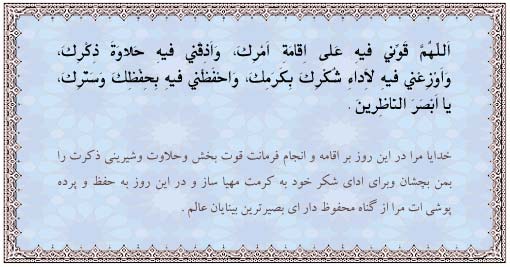 اَللّهُمَّ قَوِّنى فيهِ عَلى اِقامَةِ اَمْرِكَ، وَاَذِقْنى فيهِ حَلاوَةَ ذِكْرِكَ،
وَاَوْزِعْنى فيهِ لاَِداءِ شُكْرِكَ بِكَرَمِكَ، وَاحْفَظْنى فيهِ بِحِفْظِكَ وَسَتْرِكَ،
يا اَبْصَرَ النّاظِرينَ .
خدایا مرا در این روز بر اقامه و انجام فرمانت قوت بخش وحلاوت وشیرینی ذکرت را
بمن بچشان وبرای ادای شکر خود به کرمت مهیا ساز و در این روز به حفظ و پرده
پوشی ات مرا از گناه محفوظ دار ای بصیرترین بینایان عالم .